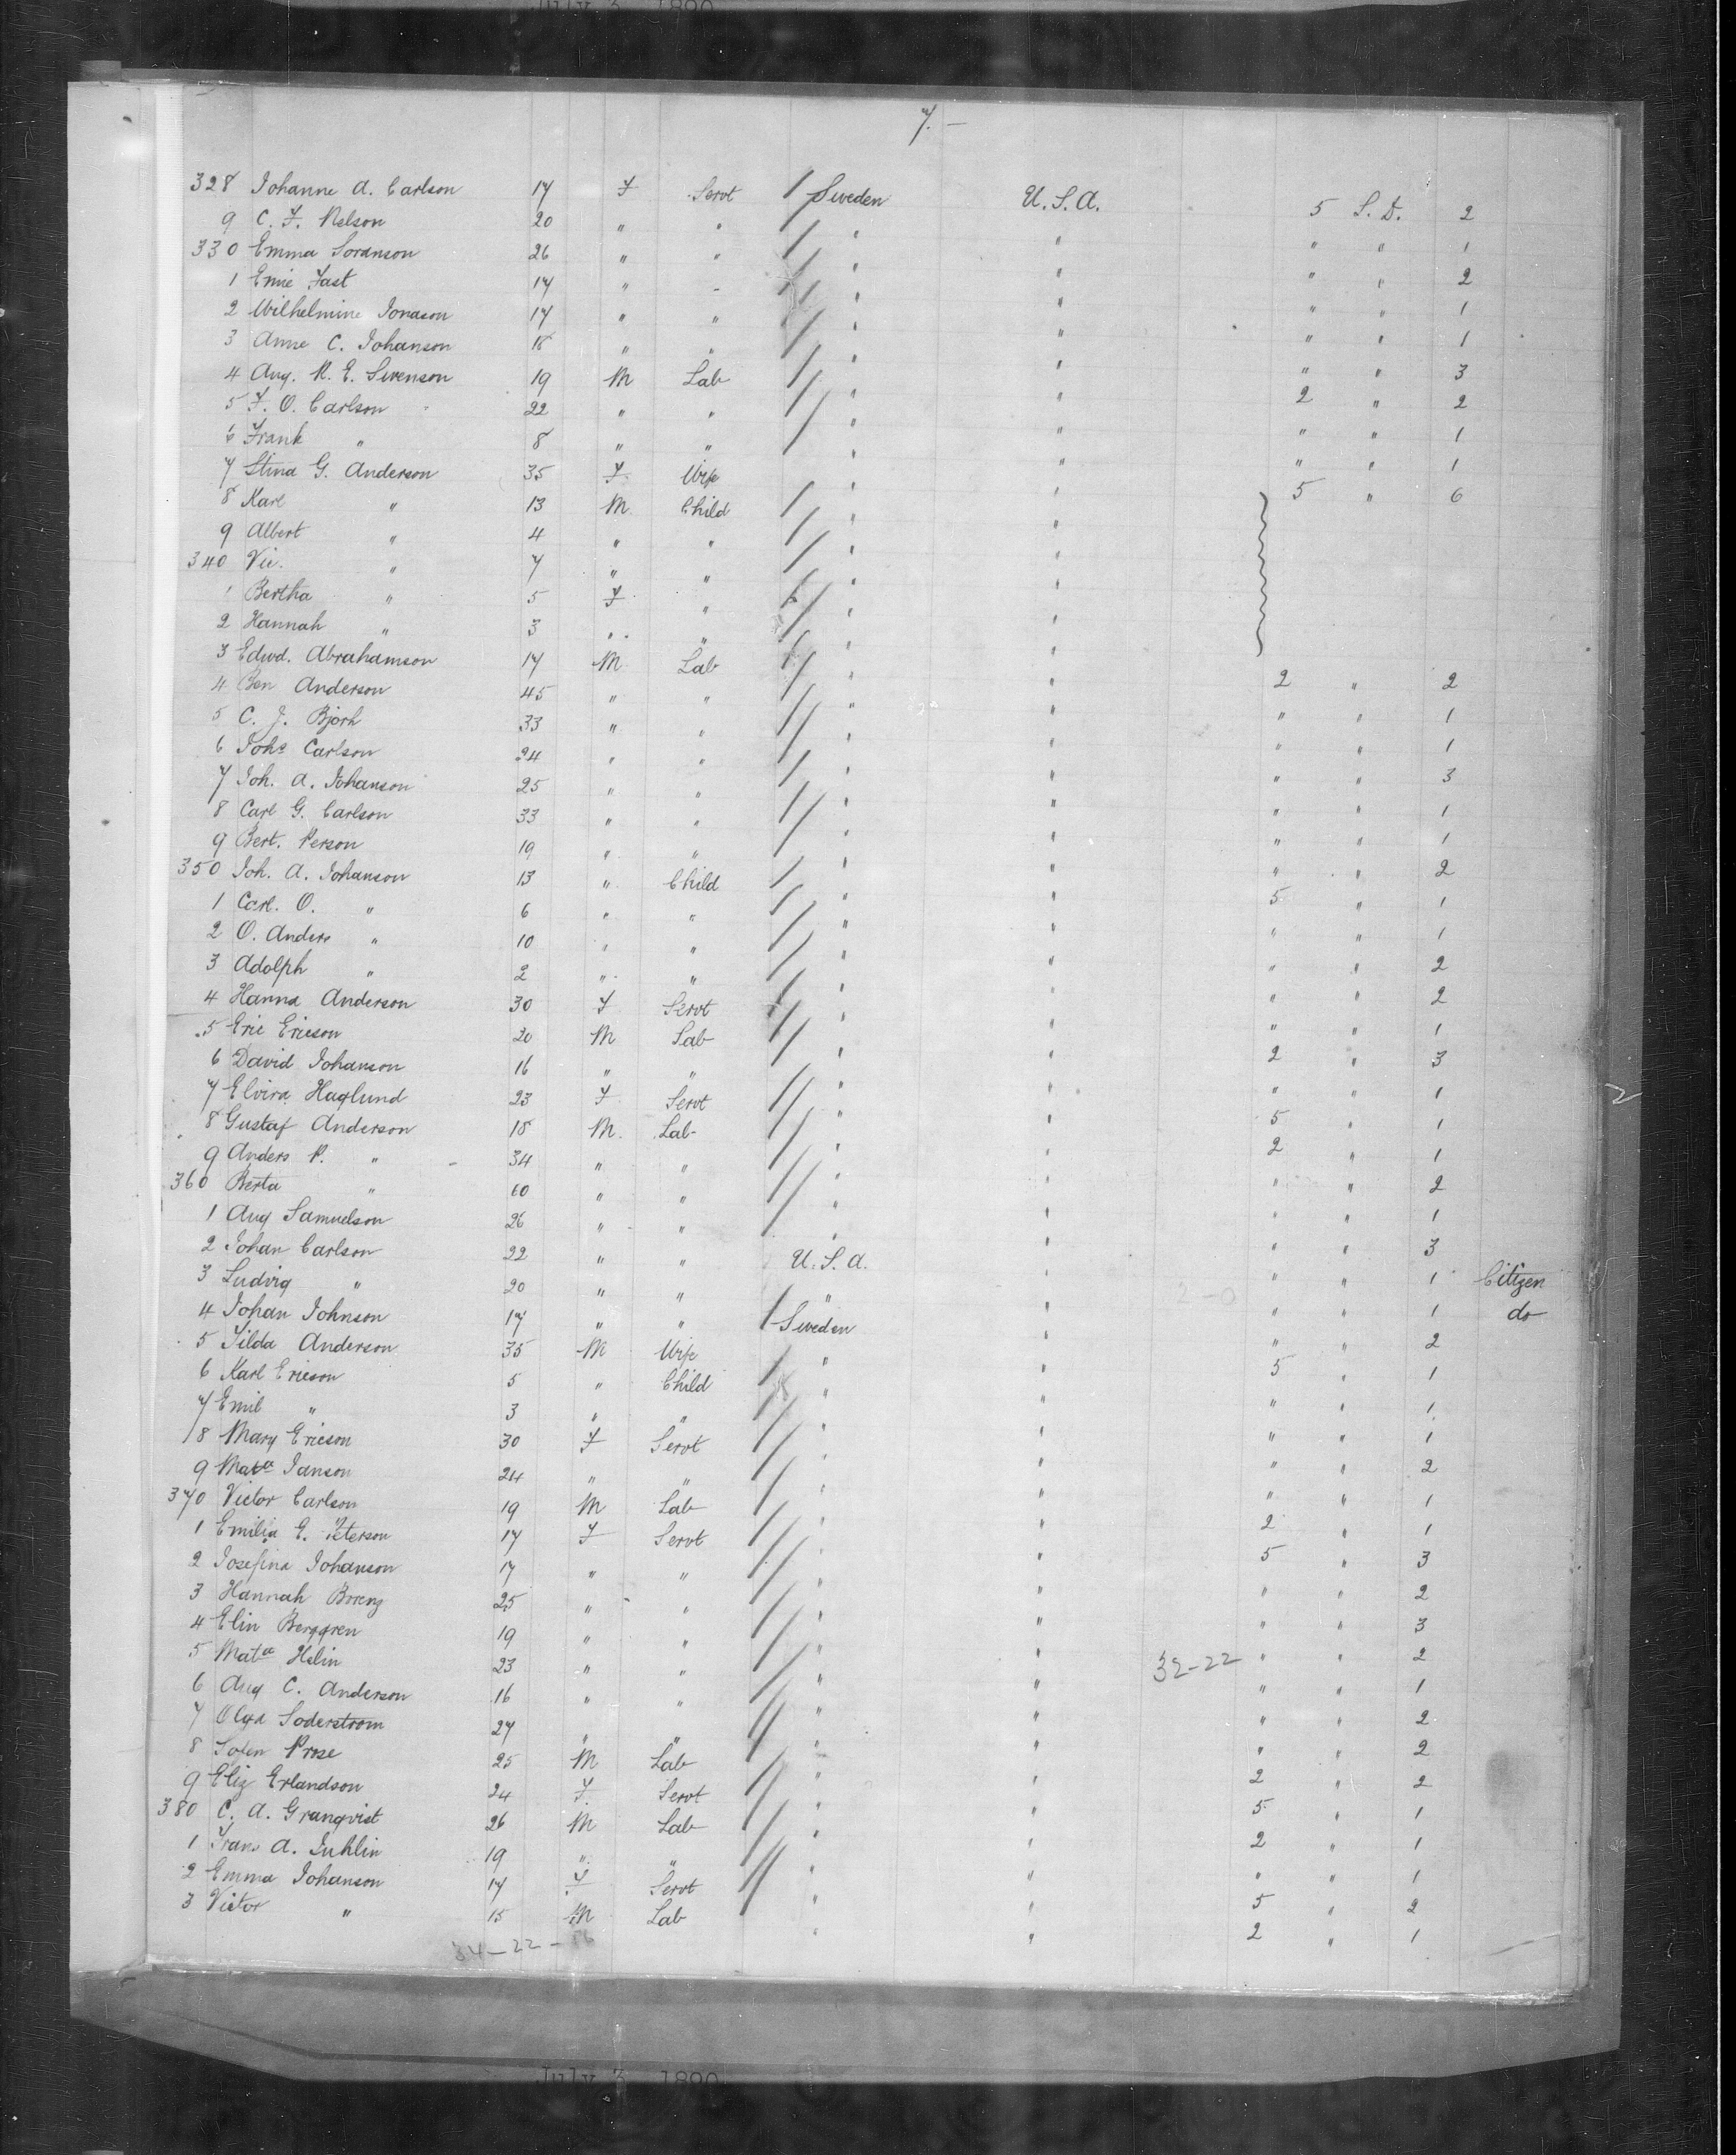 July 3, 1890
7.-
328 Johanne A. Carlson 17 F Servt / Sweden U.S.A. 5 S.D. 2
9 C. F. Nelson 20 " " / " " " " 1
330 Emma Soranson 26 " " / " " " " 2
1 Emie Fast 17 " " / " " " " 1
2 Wilhelmine Jonason 17 " " / " " " " 1
3 Anne C. Johanson 18 " " / " " " " 3
4 Aug. R. E. Svenson 19 M Lab / " " 2 " 2
5 F. O. Carlson 22 " " / " " " " 1
6 Frank " 8 " " / " " " " 1
7 Stina G. Anderson 35 F Wife " " 5 " 6
8 Karl " 13 M Child / " "
9 Albert " 4 " " / " "
340 Vic. " 7 " " / " "
1 Bertha " 5 F " / " "
2 Hannah " 3 " " / " "
3 Edwd. Abrahamson 17 M Lab / " " 2 " 2
4 Ben Anderson 45 " " / " " " " 1
5 C. J. Bjork 33 " " / " " " " 1
6 Johs Carlson 24 " " / " " " " 3
7 Joh. A. Johanson 25 " " / " " " " 1
8 Carl G. Carlson 33 " " / " " " " 1
9 Bert. Person 19 " " / " " " " 2
350 Joh. A. Johanson 13 " Child / " " 5 " 1
1 Carl. O. " 6 " " / " " " " 1
2 O. Anders " 10 " " / " " " " 2
3 Adolph " 2 " " / " " " " 2
4 Hanna Anderson 30 F Servt / " " " " 1
5 Eric Ericson 20 M Lab / " " 2 " 3
6 David Johanson 16 " " / " " " " 1
7 Elvira Haglund 23 F Servt / " " 5 " 1
8 Gustaf Anderson 18 M Lab / " " 2 " 1
9 Anders P. " 34 " " / " " " " 2
360 Berta " 10 " " / " " " " 1
1 Aug Samuelson 26 " " / " " " " 3
2 Johan Carlson 22 " " U.S.A. " " " 1 Citizen
3 Ludvig " 20 " " " " " " 1 do
4 Johan Johnson 17 " " / Sweden " " " 2
5 Tilda Anderson 35 M Wife / " " 5 " 1
6 Karl Ericson 5 " Child / " " " " 1
7 Emil " 3 " " / " " " " 1
8 Mary Ericson 30 F Servt / " " " " 2
9 Mata Janson 24 " " / " " " " 1
370 Victor Carlson 19 M Lab / " " 2 " 1
1 Emilia E. Peterson 17 F Servt / " " 5 " 3
2 Josefina Johanson 17 " " / " " " " 2
3 Hannah Boreng 25 " " / " " " " 3
4 Elin Berggren 19 " " / " " " " 2
5 Mata Helin 23 " " / " " 32-22 " " 1
6 Aug C. Anderson 16 " " / " " " " 2
7 Olga Soderstrom 27 " " / " " " " 2
8 Prose 25 M Lab / " " 2 " 2
9 Eliz Erlandson 24 F Servt / " " 5 " 1
380 C. A. Granqvist 26 M Lab / " " 2 " 1
1 Frans A. Juhlin 19 " " / " " " " 1
2 Emma Johanson 17 F Servt / " " 5 " 2
3 Victor " 15 M Lab " " 2 " 1
34-22-
2
July 3, 1890